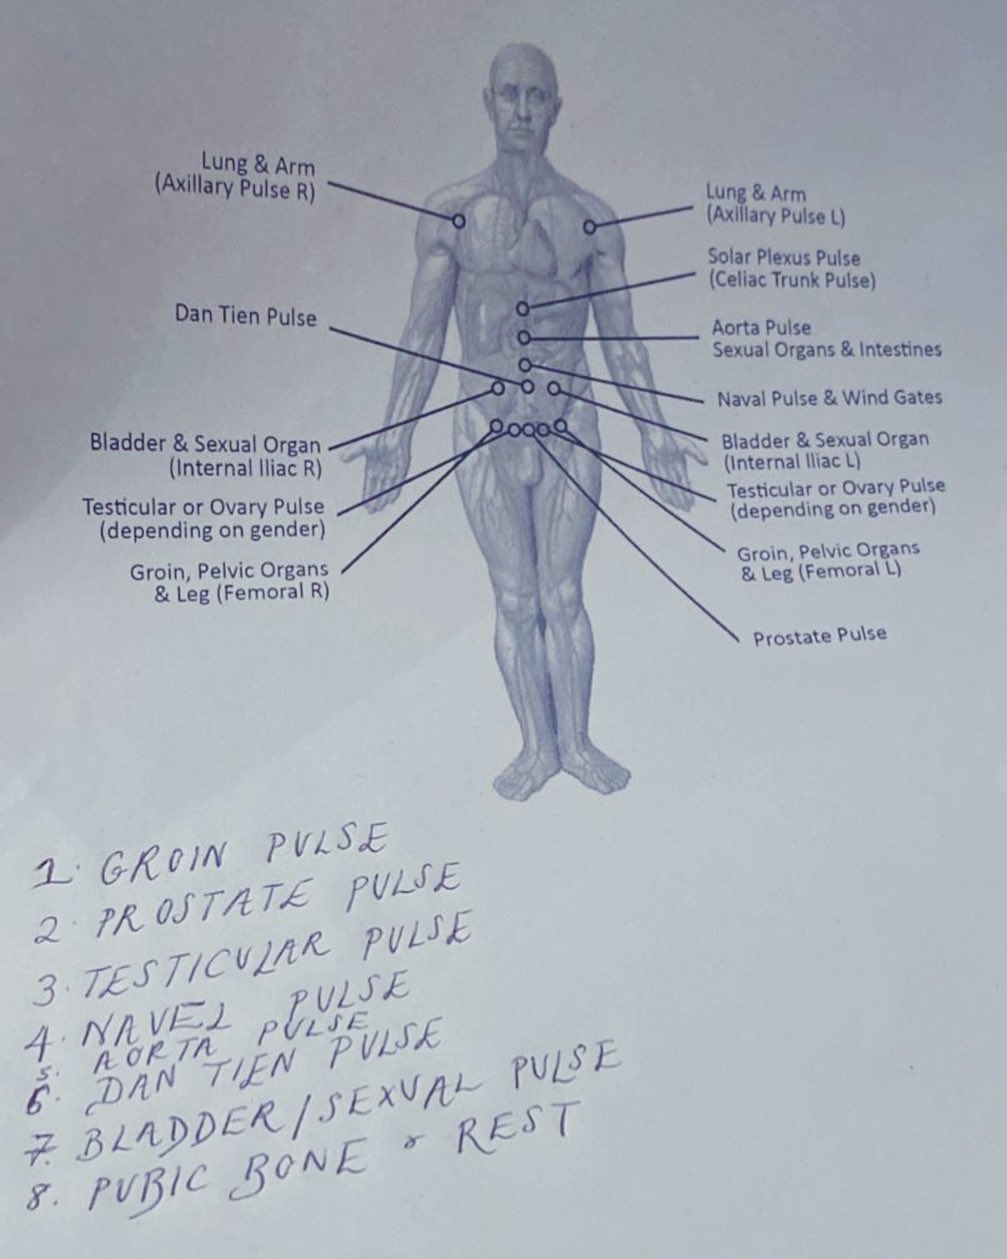 Lung & Arm
(Axillary Pulse R)
Lung & Arm
(Axillary Pulse L)
Solar Plexus Pulse
(Celiac Trunk Pulse)
Dan Tien Pulse
Aorta Pulse
Sexual Organs & Intestines
Naval Pulse & Wind Gates
Bladder & Sexual Organ
(Internal Iliac R)
Bladder & Sexual Organ
(Internal Iliac L)
Testicular or Ovary Pulse
(depending on gender)
Testicular or Ovary Pulse
(depending on gender)
Groin, Pelvic Organs
& Leg (Femoral R)
Groin, Pelvic Organs
& Leg (Femoral L)
Prostate Pulse
1. GROIN PULSE
2. PROSTATE PULSE
3. TESTICULAR PULSE
4. NAVEL PULSE
5. AORTA PULSE
6. DAN TIEN PULSE
7. BLADDER/SEXUAL PULSE
8. PUBIC BONE & REST